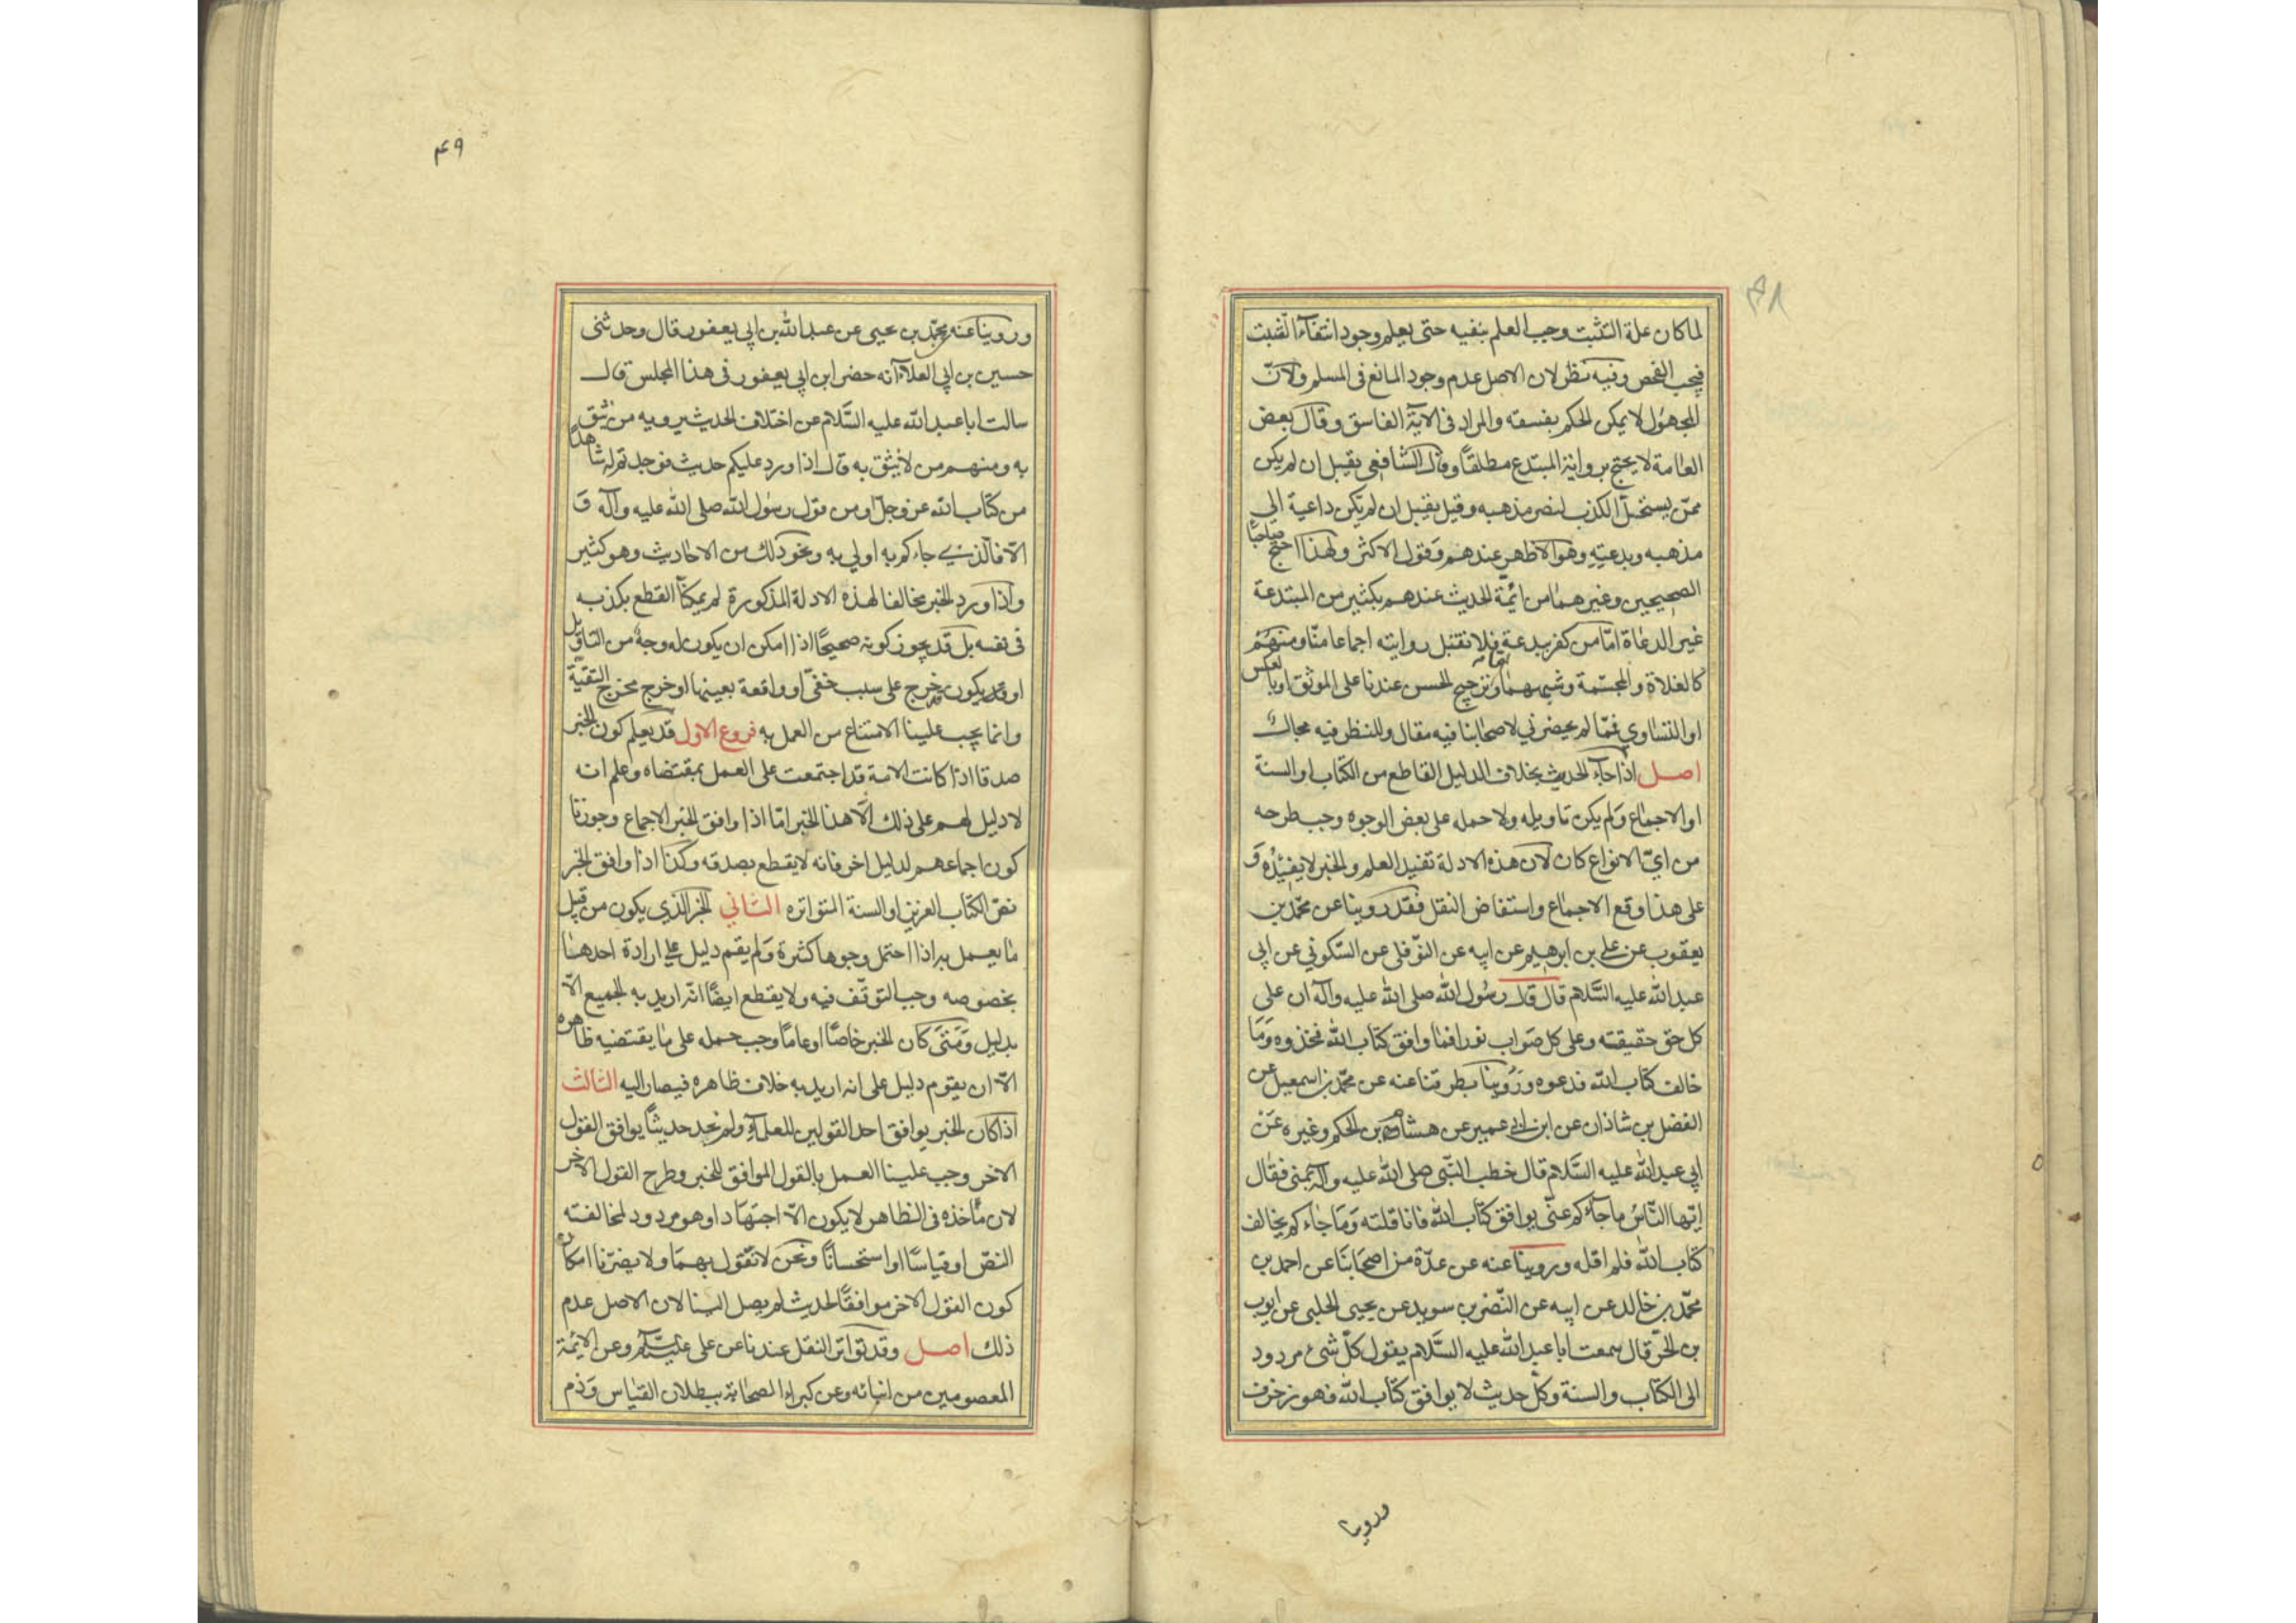 ۴۸
لما كان علة التثبت وجب العلم بنفيه حتى يعلم وجود انتفاء التثبت
فيجب الفحص وفيه نظر لان الاصل عدم وجود المانع فى المسلم ولانّ
المجهول لا يمكن الحكم بفسقه والمراد فى الاية الفاسق وقال بعض
العامة لا يحتج برواية المبتدع مطلقاً وقال الشافعي يقبل ان لم يكن
ممّن يستحلّ الكذب لنصر مذهبه وقيل يقبل ان لم يكن داعية الى
مذهبه وبدعته وهو الاظهر عندهم وقول الاكثر ولهذا احتج صاحبا
الصحيحين وغيرهما من ائمّة الحديث عندهم بكثير من المبتدعة
غير الدعاة امّا من كفر ببدعة فلا نقبل روايته اجماعا منّا ومنهم
كالغلاة والمجسّمة وشبههما وترجيح الحسن عندنا على الموثق او بالعكس
او التساوي فمّا لم يحضرني لاصحابنا فيه مقال وللنظر فيه مجال
اصل اذا جاء الحديث بخلاف الدليل القاطع من الكتاب او السنة
او الاجماع ولم يكن تاويله ولا حمله على بعض الوجوه وجب طرحه
من ايّ الانواع كان لان هذه الادلة تفيد العلم والخبر لا يفيده وَ
على هذا وقع الاجماع واستفاض النقل فقد روينا عن محمّد بن
يعقوب عن علي بن ابرهيم عن ابيه عن النّوفلى عن السّكوني عن ابى
عبد الله عليه السَّلام قال قال رسُول الله صلى الله عليه وآله ان على
كل حق حقيقته وعلى كل صَواب نورا فما وافق كتاب الله فخذوه وَمَا
خالف كتاب الله فدعوه ورَوُينا بطرقنا عنه عن محمّد بن اسمعيل عن
الفضل بن شاذان عن ابن ابى عمير عن هشام بن الحكم وغيره عَن
ابي عبد الله عليه السَّلام قال خطب النّبى صلى الله عليه وآله بمنى فقال
ايّها النّاسُ ما جآءكم عنّى يوافق كتاب الله فانا قلته وَمَا جاءكم يخالف
كتاب الله فلم اقله وروينا عنه عن عدّة من اصحَابنَا عن احمد بن
محمّد بن خالد عن ابيه عن النّضر بن سويد عن يحيى الحلبى عن ايوب
بن الحرّ قال سمعت ابا عبد الله عليه السَّلام يقول كلّ شىء مردود
الى الكتاب والسنة وكل حديث لا يوافق كتاب الله فهو زخرف
وروينا
۴۹
وروينا عنه محمّد بن يحيى عن عبد الله بن ابي يعفور قال وحدثنى
حسين بن ابي العلاء انه حضر ابن ابي يعفور فى هذا المجلس قال
سالت ابا عبد الله عليه السَّلام عن اختلاف الحديث يرويه من نثق
به ومنهم من لا نثق به قال اذا ورد عليكم حديث فوجدتم له شاهدًا
من كتاب الله عز وجلّ او من قول رسُول الله صلى الله عليه وآله وَ
الّا فالّذي جاءكم به اولي به ونحو ذلك من الاحاديث وهو كثير
واذا ورد الخبر مخالفا لهذه الادلة المذكورة لم يمكنّا القطع بكذبه
فى نفسه بل قد يجوز كونه صحيحًا اذا امكن ان يكون له وجهٌ من التاويل
او قد يكون خرج على سبب خفىّ او واقعة بعينها او خرج مخرج التقيّة
وانما يجب علينا الامتناع من العمل به فروع الاول قد يعلم كون الخبر
صدقا اذا كانت الامة قد اجتمعت على العمل بمقتضاه وعلم انه
لا دليل لهم على ذلك الّا هذا الخبر امّا اذا وافق الخبر الاجماع وجوزنا
كون اجماعهم لدليل اخر فانه لا يقطع بصدقه وكذا اذا وافق الخبر
نصّ الكتاب العزيز او السنة المتواتره الثاني الخبر الذي يكون من قبل
ما يعمل به اذا احتمل وجوها كثيرة وَلم يقم دليل على ارادة احدها
بخصوصه وجب التوقّف فيه ولا يقطع ايضًا انّه اريد به الجميع الّا
بدليل وَمَتى كان الخبر خاصّا او عامًا وجب حمله على مَا يقتضيه ظاهره
الّا ان يقوم دليل على انه اريد به خلاف ظاهره فيصار اليه الثالث
اذا كان الخبر يوافق احد القولين للعلماء ولم نجد حديثاً يوافق القول
الاخر وجب علينا العمل بالقول الموافق للخبر وطرح القول الاخر
لان مأخذه فى الظاهر لا يكون الّا اجتهادا وهو مردود لمخالفته
النصّ او قياسًا او استحساناً ونحن لا نقول بهما ولا يضرّنا امكان
كون القول الاخر موافقًا لحديث لم يصل الينا لان الاصل عدم
ذلك اصل وقد تواتر النقل عندنا عن على عليه السّلام وعن الائمة
المعصومين من ابنائه وعن كبراء الصحابة ببطلان القياس وَذم